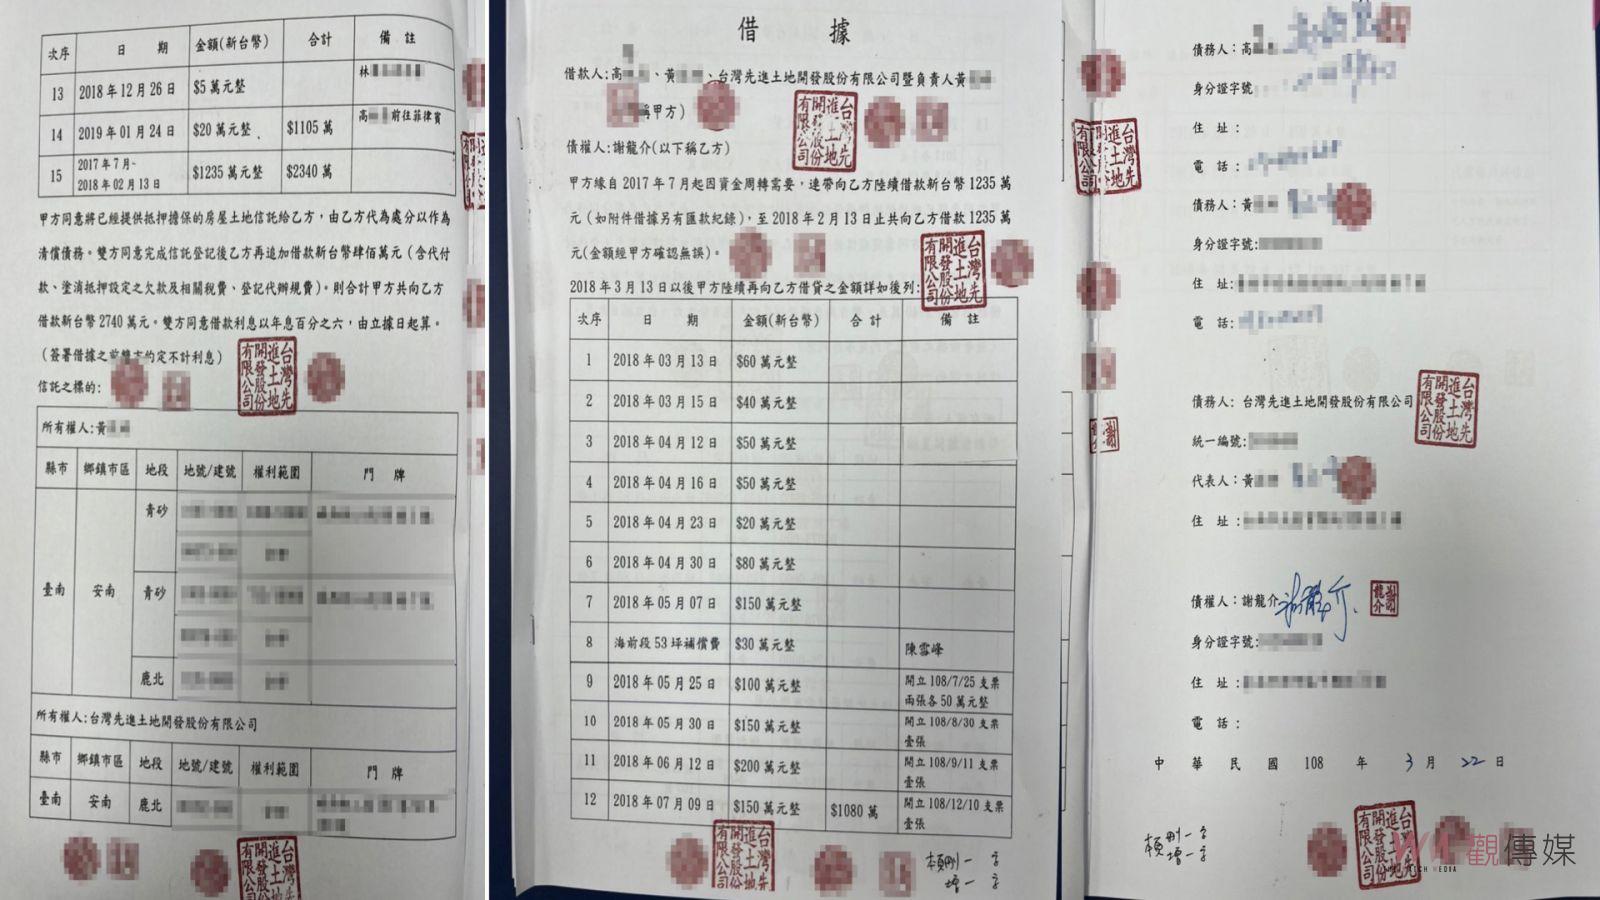 次序 日 期 金額(新台幣) 合計 備 註
13 2018年12月26日 $5萬元整 林
14 2019年01月24日 $20萬元整、 $1105萬 高 前往菲律賓
15 2017年7月- 2018年02月13日 $1235萬元整 $2340萬
甲方同意將已經提供抵押擔保的房屋土地信託給乙方,由乙方代為處分以作為
清償債務。雙方同意完成信託登記後乙方再追加借款新台幣肆佰萬元(含代付
款、塗消抵押設定之欠款及相關稅費、登記代辦規費)。則合計甲方共向乙方
借款新台幣2740萬元。雙方同意借款利息以年息百分之六,由立據日起算。
(簽署借據之前雙方約定不計利息)
信託之標的:
台灣先進土地開發股份有限公司
所有權人:黃
縣市 鄉鎮市區 地段 地號/建號 權利範圍 門 牌
臺南 安南 青砂
青砂
鹿北
所有權人:台灣先進土地開發股份有限公司
縣市 鄉鎮市區 地段 地號/建號 權利範圍 門 牌
臺南 安南 鹿北
借 據
借款人:高 、黃 、台灣先進土地開發股份有限公司暨負責人黃
稱甲方)
台灣先進土地開發股份有限公司
債權人:謝龍介(以下稱乙方)
甲方緣自2017年7月起因資金周轉需要,連帶向乙方陸續借款新台幣1235萬
元(如附件借據另有匯款紀錄),至2018年2月13日止共向乙方借款1235萬
元(金額經甲方確認無誤)。
台灣先進土地開發股份有限公司
2018年3月13日以後甲方陸續再向乙方借貸之金額詳如後列:
次序 日 期 金額(新台幣) 合 計 備 註
1 2018年03月13日 $60萬元整
2 2018年03月15日 $40萬元整
3 2018年04月12日 $50萬元整
4 2018年04月16日 $50萬元整
5 2018年04月23日 $20萬元整
6 2018年04月30日 $80萬元整
7 2018年05月07日 $150萬元整
8 海前段53坪補償費 $30萬元整 陳雪峰
9 2018年05月25日 $100萬元整 開立108/7/25支票 兩張各50萬元整
10 2018年05月30日 $150萬元整 開立108/8/30支票 壹張
11 2018年06月12日 $200萬元整 開立108/9/11支票 壹張
12 2018年07月09日 $150萬元整 $1080萬 開立108/12/10支票 壹張
台灣先進土地開發股份有限公司
刪一字
增一字
債務人:高
身分證字號
住 址:
電 話:
台灣先進土地開發股份有限公司
債務人:黃
身分證字號:
住 址:
電 話:
債務人:台灣先進土地開發股份有限公司
台灣先進土地開發股份有限公司
統一編號:
代表人:黃
住 址:
債權人:謝龍介
謝龍介
身分證字號:
住 址:
電 話:
中 華 民 國 108 年 3 月 22 日
刪一字
增一字
台灣先進土地開發股份有限公司
觀傳媒